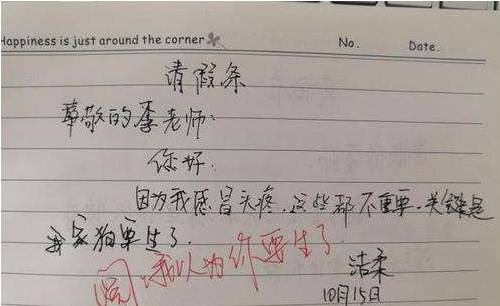 Happiness is just around the corner No. Date.
请假条
尊敬的李老师:
你好:
因为我感冒头疼，这些都不重要，关键是
我家狗要生了.
阅.我以为你要生了
洁柔
10月15日